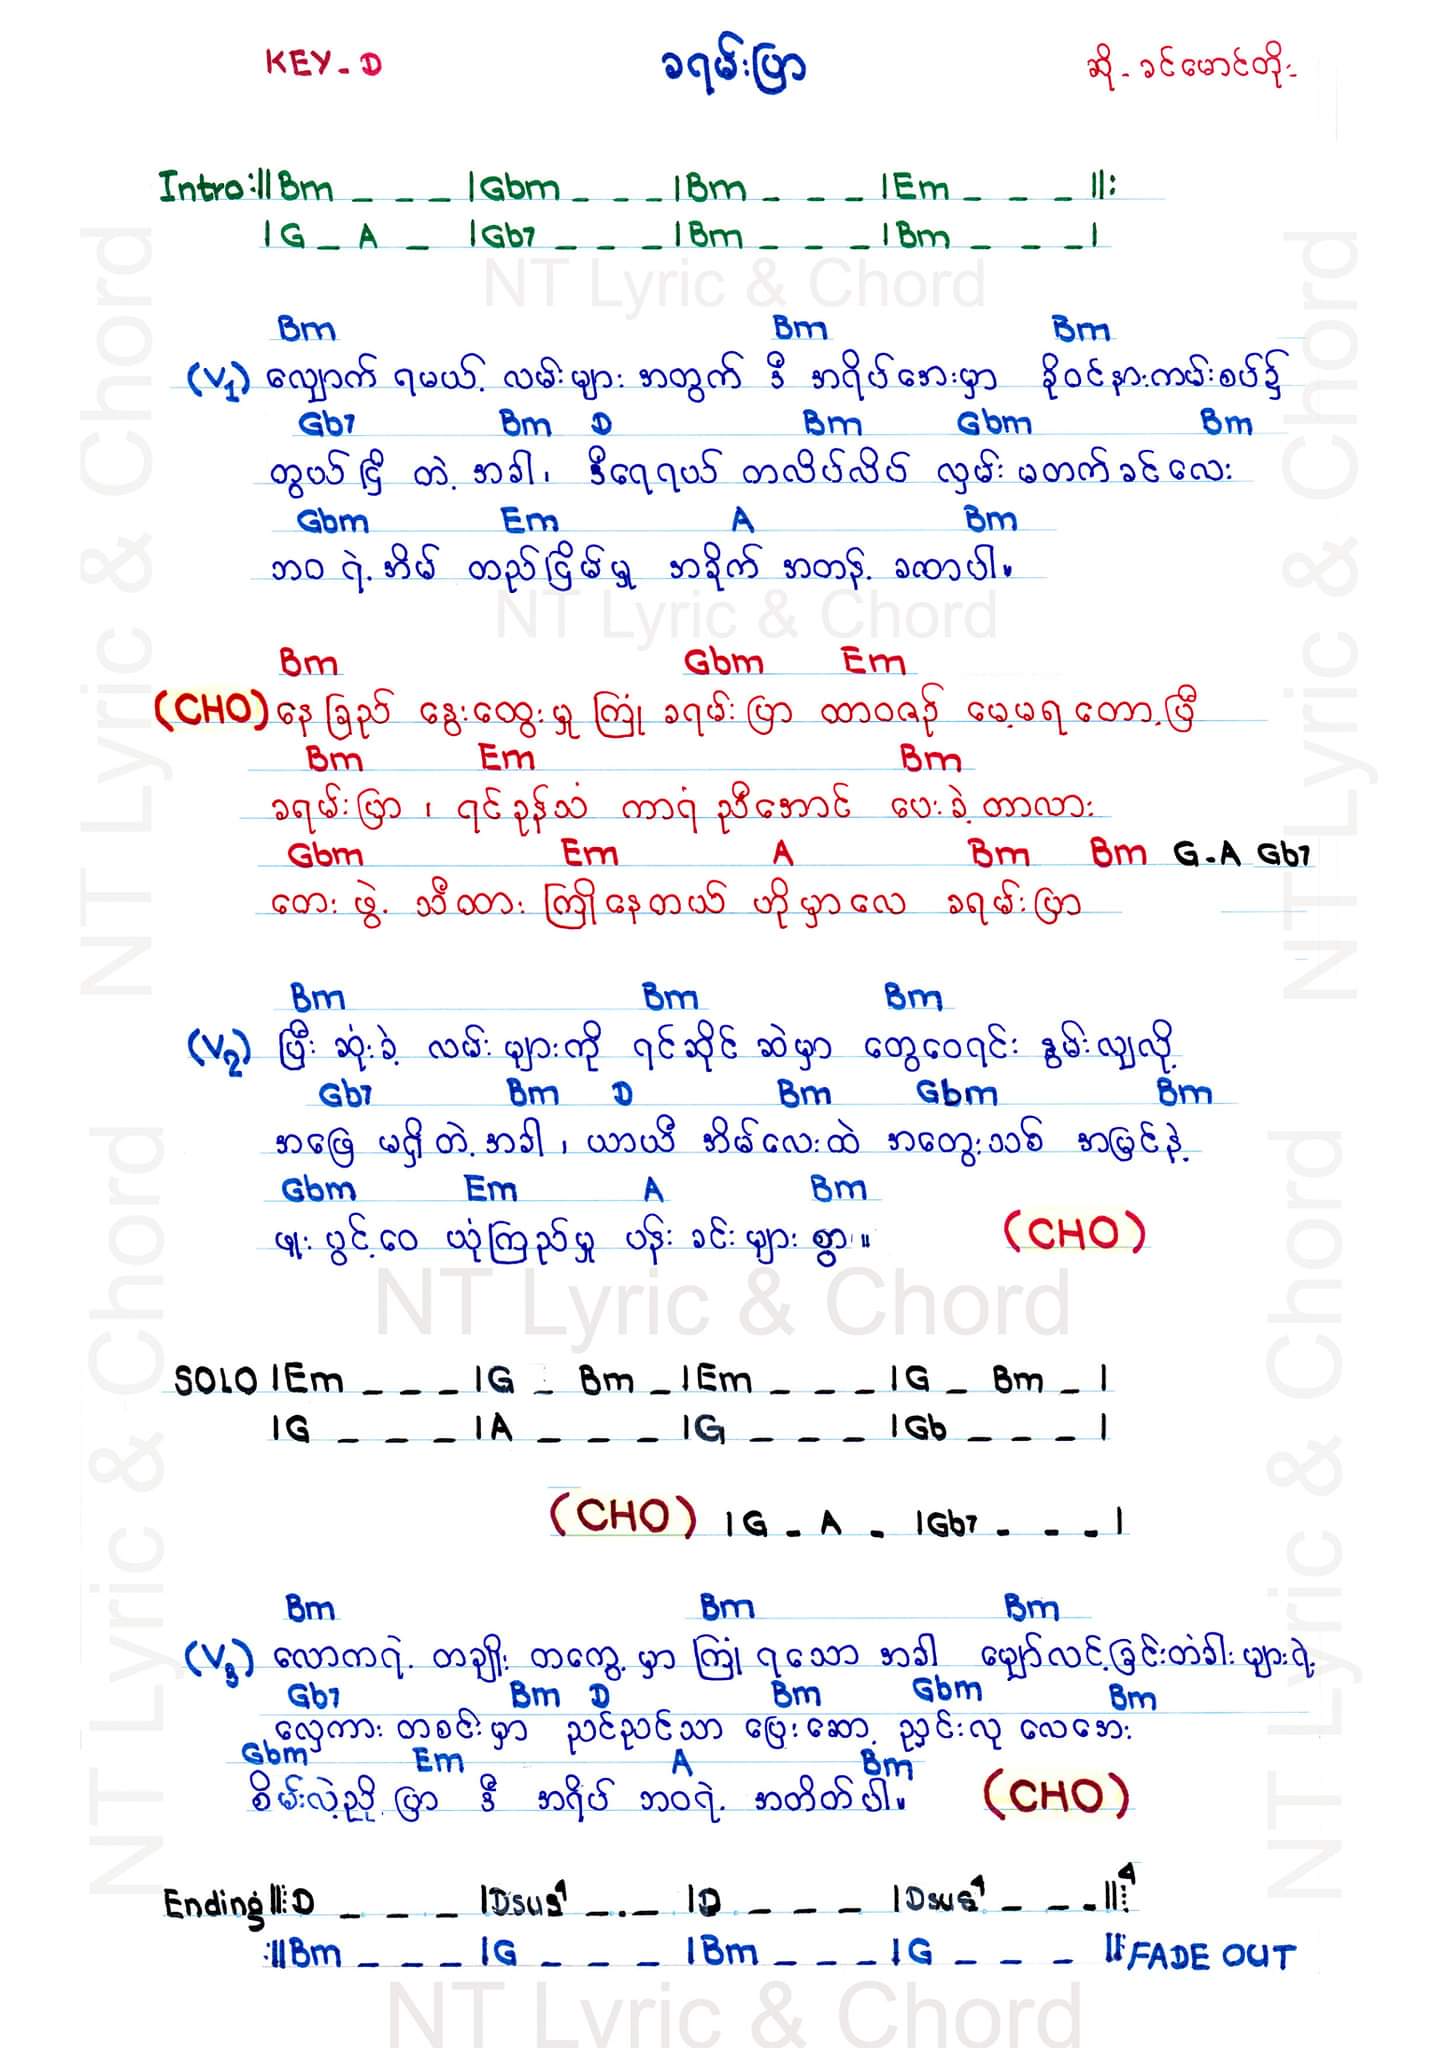 KEY - D ခရမ်းပြာ ဆို - ခင်မောင်တိုး
Intro :|| Bm _ _ _ | Gbm _ _ _ | Bm _ _ _ | Em _ _ _ ||:
| G _ A _ | Gb7 _ _ _ | Bm _ _ _ | Bm _ _ _ |
NT Lyric & Chord
Bm Bm Bm
(V1) လျှောက် ရမယ့် လမ်းများ အတွက် ဒီ အရိပ်အေးမှာ ခိုဝင်နားကမ်းစပ်၌
Gb7 Bm D Bm Gbm Bm
တွယ်ငြိ တဲ့ အခါ၊ ဒီရေရယ် တလိပ်လိပ် လှမ်း မတက်ခင်လေး
Gbm Em A Bm
ဘဝ ရဲ့ အိမ် တည်ငြိမ်မှု အခိုက် အတန့် ခဏာပါ။
NT Lyric & Chord
Bm Gbm Em
(CHO) နေ ခြည် နွေးထွေးမှု ကြုံ ခရမ်းပြာ ထာဝစဉ် မေ့မရတော့ပြီ
Bm Em Bm
ခရမ်းပြာ ၊ ရင်ခုန်သံ ကာရံ ညီအောင် ပေးခဲ့တာလား
Gbm Em A Bm Bm G - A Gb7
တေး ဖွဲ့ သီထား ကြိုနေတယ် ဟိုမှာလေ ခရမ်းပြာ
Bm Bm Bm
(V2) ပြီး ဆုံးခဲ့ လမ်းများကို ရင်ဆိုင် ဆဲမှာ တွေဝေရင်း နွမ်းလျလို့
Gb7 Bm D Bm Gbm Bm
အဖြေ မရှိတဲ့ အခါ ၊ ယာယီ အိမ်လေးထဲ အတွေးသစ် အမြင်နဲ့
Gbm Em A Bm
ဖူး ပွင့်ဝေ ယုံကြည်မှု ပန်း ခင်းများ စွာ ။ (CHO)
NT Lyric & Chord
SOLO | Em _ _ _ | G _ Bm _ | Em _ _ _ | G _ Bm _ |
| G _ _ _ | A _ _ _ | G _ _ _ | Gb _ _ _ |
(CHO) | G - A - | Gb7 - - - |
Bm Bm Bm
(V3) လောကရဲ့ တချိုး တကွေ့ မှာ ကြုံ ရသော အခါ မျှော်လင့်ခြင်းတံခါးများရဲ့
Gb7 Bm D Bm Gbm Bm
လှေကား တစင်းမှာ ညင်ညင်သာ ပြေးဆော့ ညှင်းလု လေအေး
Gbm Em A Bm
စိမ်းလဲ့ညို့ ပြာ ဒီ အရိပ် ဘဝရဲ့ အတိတ်ပါ။ (CHO)
Ending ||: D _ _ _ | Dsus4 _ . _ | D _ _ _ | Dsus4 _ _ _ ||: 4
:|| Bm _ _ _ | G _ _ _ | Bm _ _ _ | G _ _ _ ||: FADE OUT
NT Lyric & Chord
NT Lyric & Chord
NT Lyric & Chord
NT Lyric & Chord
NT Lyric & Chord